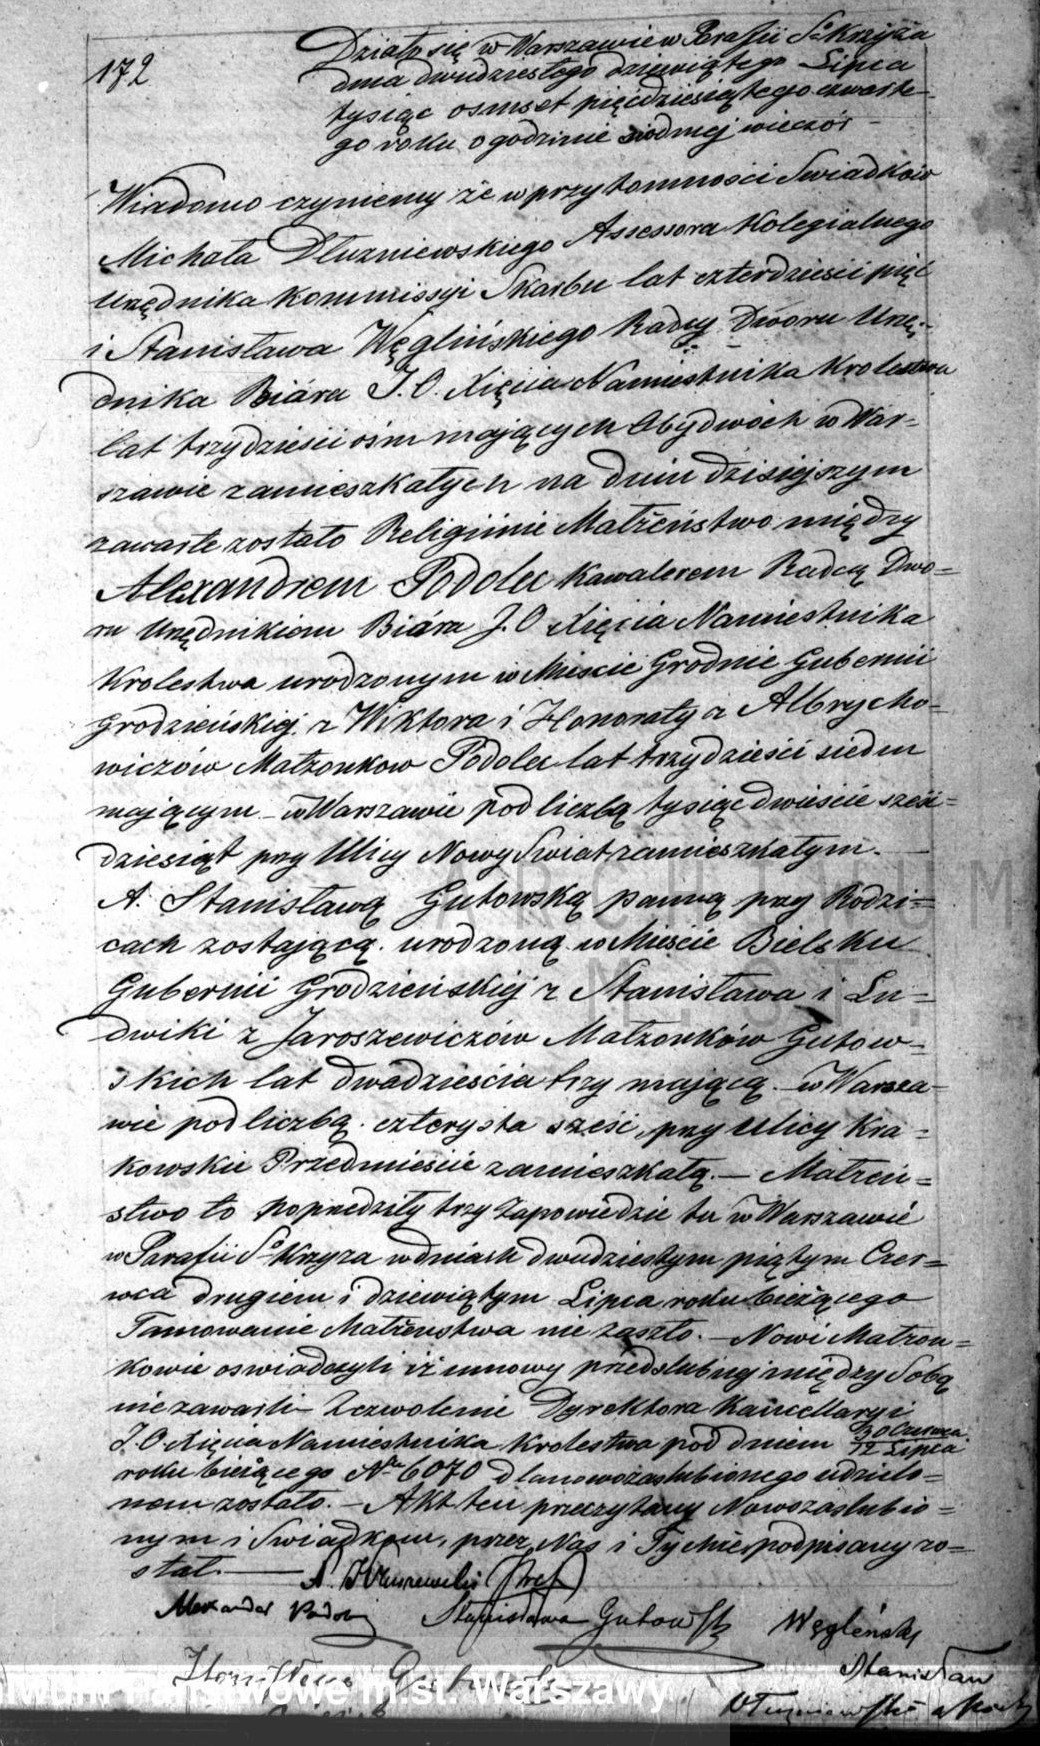 172
Działo się w Warszawie w Parafii Sº Krzyża
dnia dwudziestego dziewiątego Lipca
tysiąc osmset pięćdziesiątego czwarte-
go roku o godzinie siodmej wieczór -
Wiadomo czyniemy że w przytomności Swiadków
Michała Dłużniewskiego Assessora Kolegialnego
Urzędnika Kommissyi Skarbu lat czterdzieści pięć
i Stanisława Węglińskiego Radcy Dworu Urzę-
dnika Biára J.O. Xięcia Namiestnika Krolestwa
lat trzydzieści ośm mających Obydwóch w War-
szawie zamieszkałych na dniu dzisiejszym
zawarte zostało Religijnie Małżeństwo między
Alexandrem Podolec Kawalerem Radcą Dwo=
ru Urzędnikiem Biára J.O Xięcia Namiestnika
Krolestwa urodzonym w Mieście Grodnie Gubernii
Grodzieńskiej z Wiktora i Honoraty z Albrycho-
wiczów Małżonkow Podolec lat trzydzieści siedm
mającym - w Warszawie pod liczbą tysiąc dwieście sześć=
dziesiąt przy Ulicy Nowy Swiat zamieszkałym. -
A. Stanisławą Gutowską panną przy Rodzi=
cach zostającą. urodzoną w Mieście Bielsku
Gubernii Grodzieńskiej z Stanisława i Lu=
dwiki z Jaroszewiczów Małżonków Gutow-
skich lat dwadzieścia trzy mającą. - w Warsza-
wie pod liczbą. czterysta sześć, przy Ulicy Kra=
kowskie Przedmieście zamieszkałą. - Małżeń=
stwo to poprzedziły trzy Zapowiedzie tu w Warszawie
w Parafii Sº Krzyża w dniach dwudziestym piątym Czer=
wca drugiem i dziewiątym Lipca roku bieżącego
Tamowanie Małżeństwa nie zaszło. - Nowi Małżon=
kowie oswiadczyli iż umowy przedslubnej między Sobą
nie zawarli - Zezwolenie Dyrektora Kancellaryi
J.O Xięcia Namiestnika Krolestwa pod dniem 30 Czerwca/12 Lipca
roku bieżącego Nº 6070 dla nowozaslubionego udzielo=
nem zostało. - Akt ten przeczytany Nowozaslubio=
nym i Swiadkom, przez Nas i Tychże podpisany zo=
stał. -
Alexander Podolec Stanisława Gutowska Węgleński
Stanisław
Archiwum Państwowe m.st. Warszawy
ARCHIWUM
M. ST.